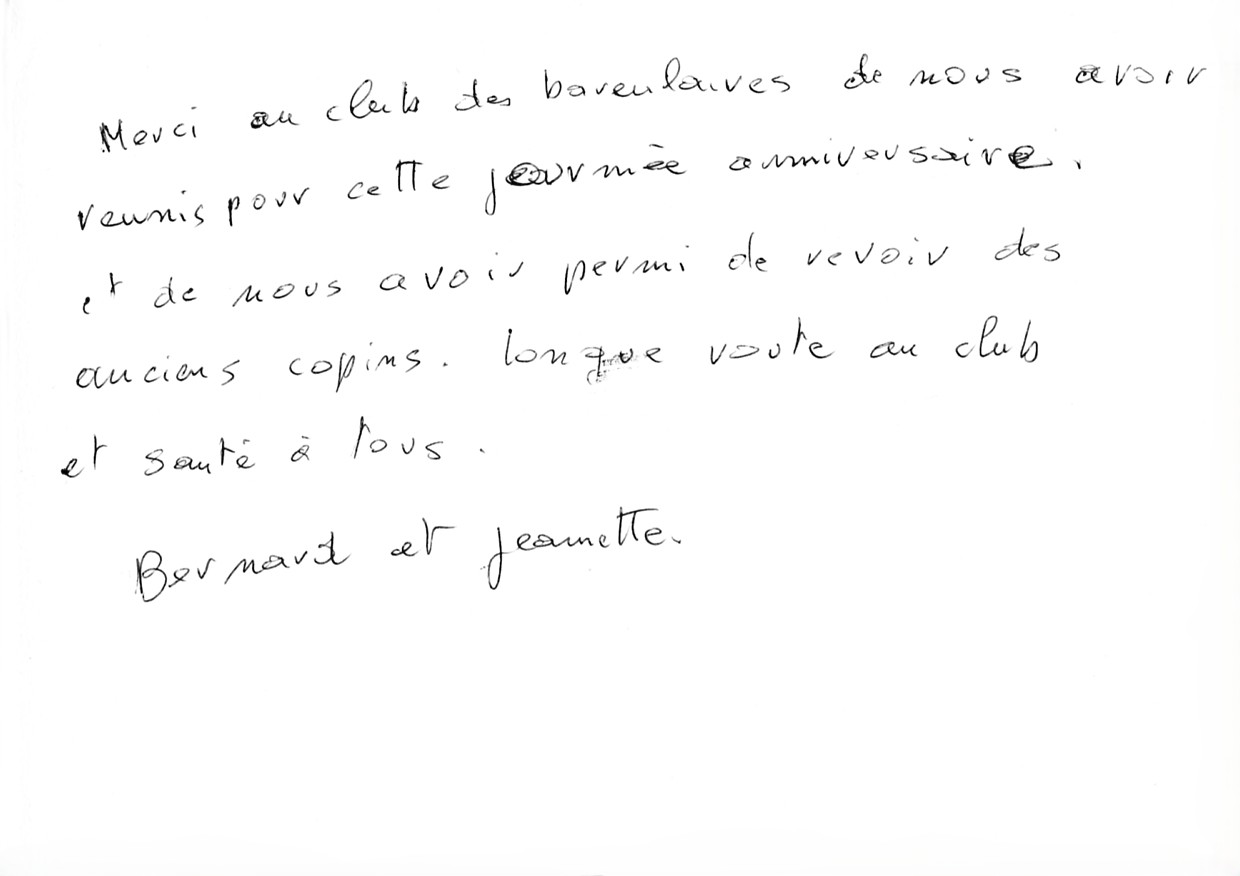 Merci au club des baroulaires de nous avoir
reunis pour cette journée anniversaire.
et de nous avoir permi de revoir des
anciens copins. longue route au club
et santé à tous.
Bernard et jeannette.